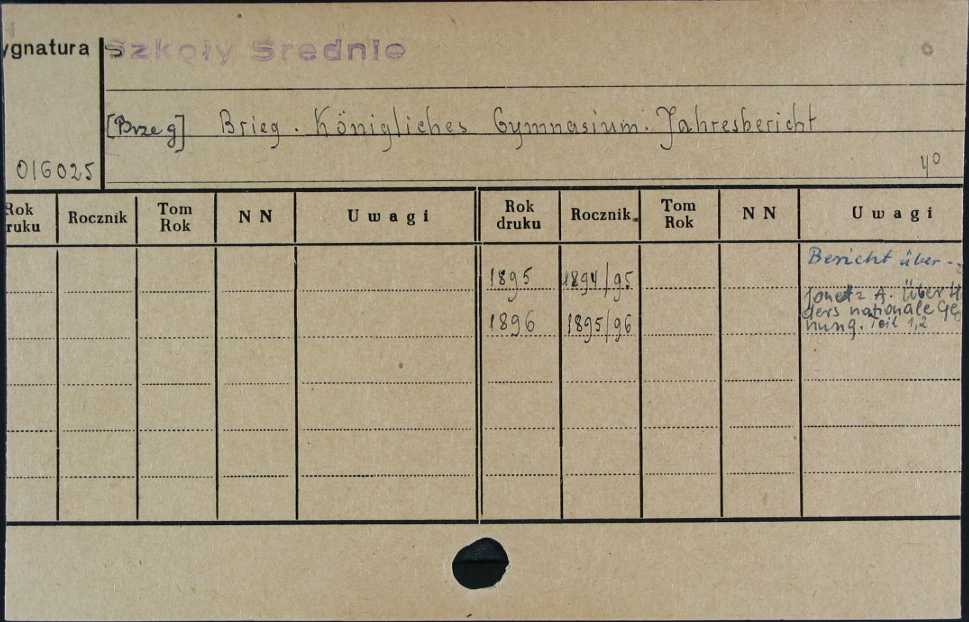 ygnatura
Szkoły Średnie
[Brzeg] Brieg. Königliches Gymnasium. Jahresbericht
016025
4°
Rok druku Rocznik Tom Rok N N Uwagi Rok druku Rocznik Tom Rok N N Uwagi
Bericht über
1895 1894/95
Jonetz A. Über H
ders nationale Ge
1896 1895/96
nung. Teil 1,2